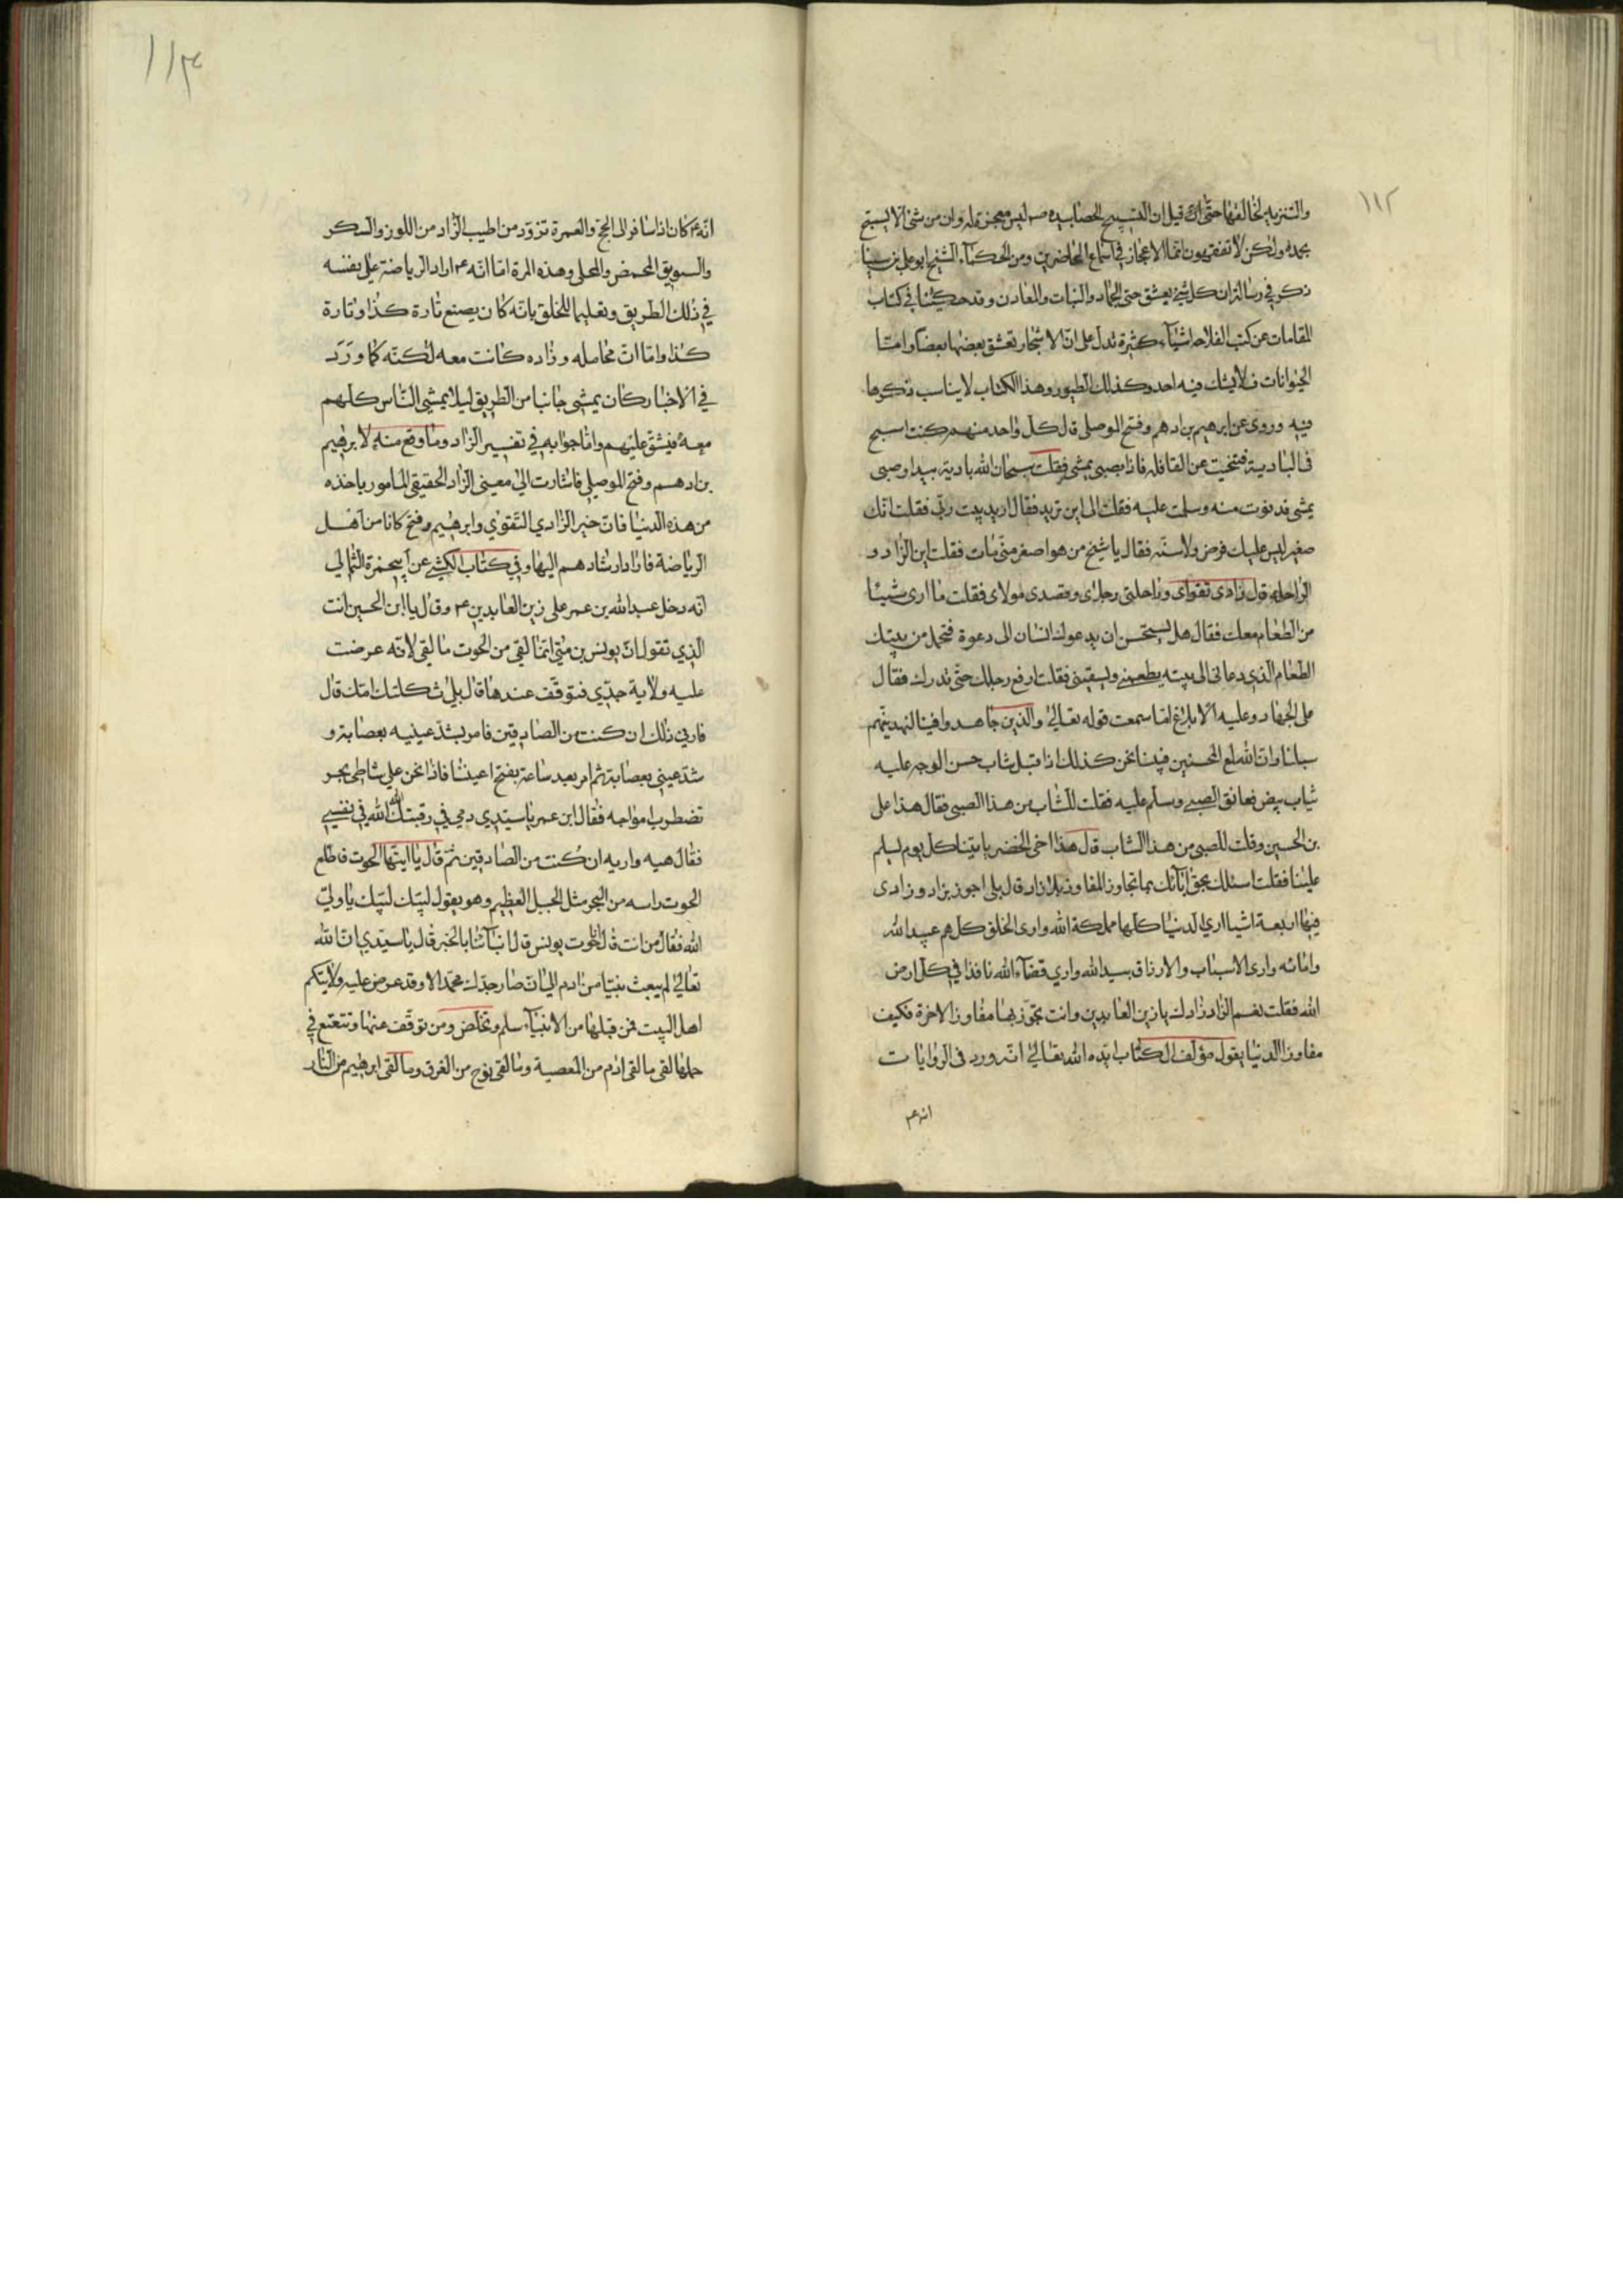 ١١٢
والتنزيه لخالقها حتى انه قيل ان التسبيح الحصا بيده ص ليس معجزة له وان من شئ الا يسبح
بحمده ولكن لا تفقهون انما الاعجاز في اسماع الحاضرين ومن الحكمآء الشيخ ابو علي بن سينا
ذكر في رسالة ان كل شئ يعشق حتى الجماد والنبات والمعادن وقد حكينا في كتاب
المقامات عن كتب الفلاحه اشيآء كثيرة تدل على انّ الاشجار تعشق بعضها بعضا وامّا
الحيوانات فلا يشك فيه احد وكذلك الطيور وهذا الكتاب لا يناسب ذكرها
فيه وروى عن ابرهيم بن ادهم وفتح الموصلى قال كل واحد منهم كنت اسيح
في البادية فتنحيت عن القافله فاذا بصبى يمشى فقلت سبحان الله بادية بيدا وصبى
يمشى فدنوت منه وسلمت عليه فقلت الى اين تريد فقال اريد بيت ربّى فقلت انّك
صغير ليس عليك فرض ولا سنّه فقال يا شيخ من هو اصغر منّى مات فقلت اين الزّاد و
الراحله قال زادى تقواى وراحلتى رجلاى وقصدى مولاى فقلت ما ارى شيئا
من الطّعام معك فقال هل يستحسن ان يدعوك انسان الى دعوة فتحمل من بيتك
الطعام الذى دعانى الى بيته يطعمنى ويسقينى فقلت ارفع رجلك حتّى تدرك فقال
علىّ الجهاد وعليه الابلاغ اما سمعت قوله تعالى والّذين جاهدوا فينا لنهدينّهم
سبلنا وان الله لمع المحسنين فبينا نحن كذلك اذ اقبل شاب حسن الوجه عليه
ثياب بيض فعانق الصبى وسلم عليه فقلت للشاب من هذا الصبى فقال هذا على
بن الحسين وقلت للصبى من هذا الشاب قال هذا اخى الخضر ياتينا كل يوم ليسلم
علينا فقلت اسئلك بحق ابآئك بما تجاوز المفاوز بلا زاد قال بلى اجوز بزاد وزادى
فيها اربعة اشيا ارى الدنيا كلها مملكة الله وارى الخلق كلهم عبيد الله
وامائه وارى الاسباب والارزاق بيد الله وارى قضآء الله نافذا في كل ارض
الله فقلت نعم الزاد زادك يا زين العابدين وانت تجوّز بها مفاوز الاخرة فكيف
مفاوز الدنيا يقول مؤلف الكتاب ايّده الله تعالى انّه ورد فى الروايات
انه ع
١١٣
انّه ع كان اذا سافر الى الحج والعمرة تزوّد من اطيب الزّاد من اللوز والسكر
والسويق المحمض والمحلى وهذه المرة امّا انّه ع اراد الرياضة على نفسه
في ذلك الطريق وتعليما للخلق بانّه كان يصنع تارة كذا وتارة
كذا وامّا انّ محامله وزاده كانت معه لكنّه كما ورد
في الاخبار كان يمشى جانبا من الطريق ليلا يمشى النّاس كلهم
معه فيشقّ عليهم وامّا جوابه في تفسير الزاد وما وقع منه لابرهيم
بن ادهم وفتح الموصلي فاشارت الى معنى الزّاد الحقيقي المامور باخذه
من هذه الدنيا فانّ خير الزّاد التّقوى وابرهيم وفتح كانا من اهل
الرياضة فاراد ارشادهم اليها وفي كتاب الكشّي عن ابي حمزة الثمالي
انّه دخل عبد الله بن عمر على زين العابدين ع وقال يا ابن الحسين انت
الذي تقول انّ يونس بن متّى انّما لقي من الحوت ما لقي لانّه عرضت
عليه ولاية جدّي فتوقّف عندها قال بلى ثكلتك امّك قال
فارني ذلك ان كنت من الصّادقين فامر بشدّ عينيه بعصابة و
شدّ عيني بعصابة ثم امر بعد ساعة بفتح اعيننا فاذا نحن على شاطئ بحر
تضطرب امواجه فقال ابن عمر يا سيّدي دمي في رقبتك الله الله في نفسي
فقال هيه واريه ان كنت من الصّادقين ثم قال يا ايّتها الحوت فاطلع
الحوت راسه من البحر مثل الجبل العظيم وهو يقول لبّيك لبّيك يا وليّ
الله فقال من انت قال انا حوت يونس قال انبأنا بالخبر قال يا سيّدي ان الله
تعالى لم يبعث نبيّا من ادم الى ان صار جدّك محمّد الا وقد عرض عليه ولايتكم
اهل البيت فمن قبلها من الانبيآء سلم وتخلص ومن توقّف عنها وتتعتع في
حملها لقى ما لقى ادم من المعصية وما لقى نوح من الغرق وما لقى ابرهيم من النّار